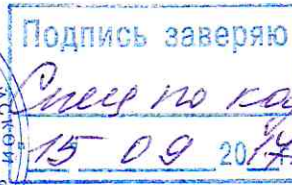 Подпись заверяю
Спец по ка
15 09 2017